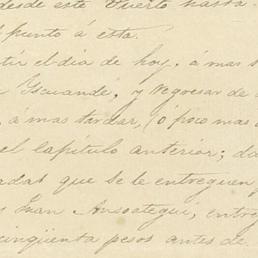 desde este Puerto hasta
punto á esta.
tir el dia de hoy, á mas
Iscuandé, y regresar de
, a mas tardar, (ó poco mas
el capítulo anterior; da
adas que se le entreguen
Juan Ansoategui, entre
cinqüenta pesos antes de